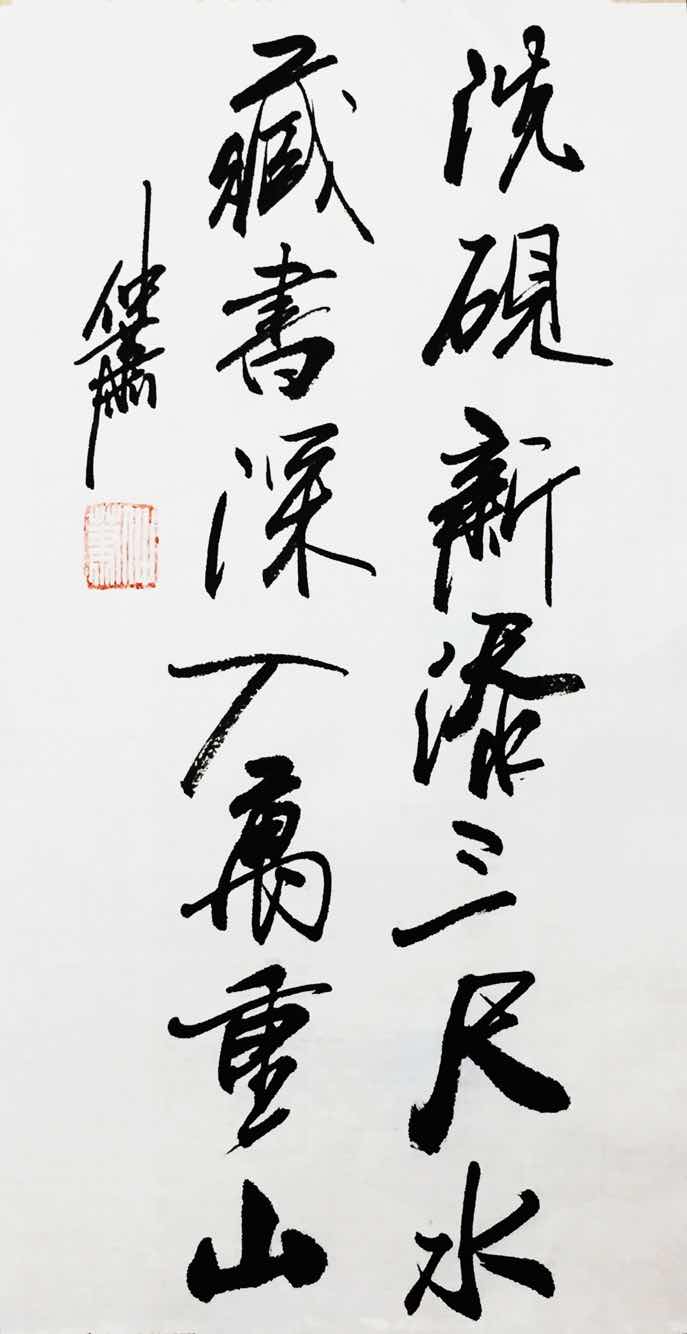 洗硯新添三尺水
藏書深入萬重山
仲蕭